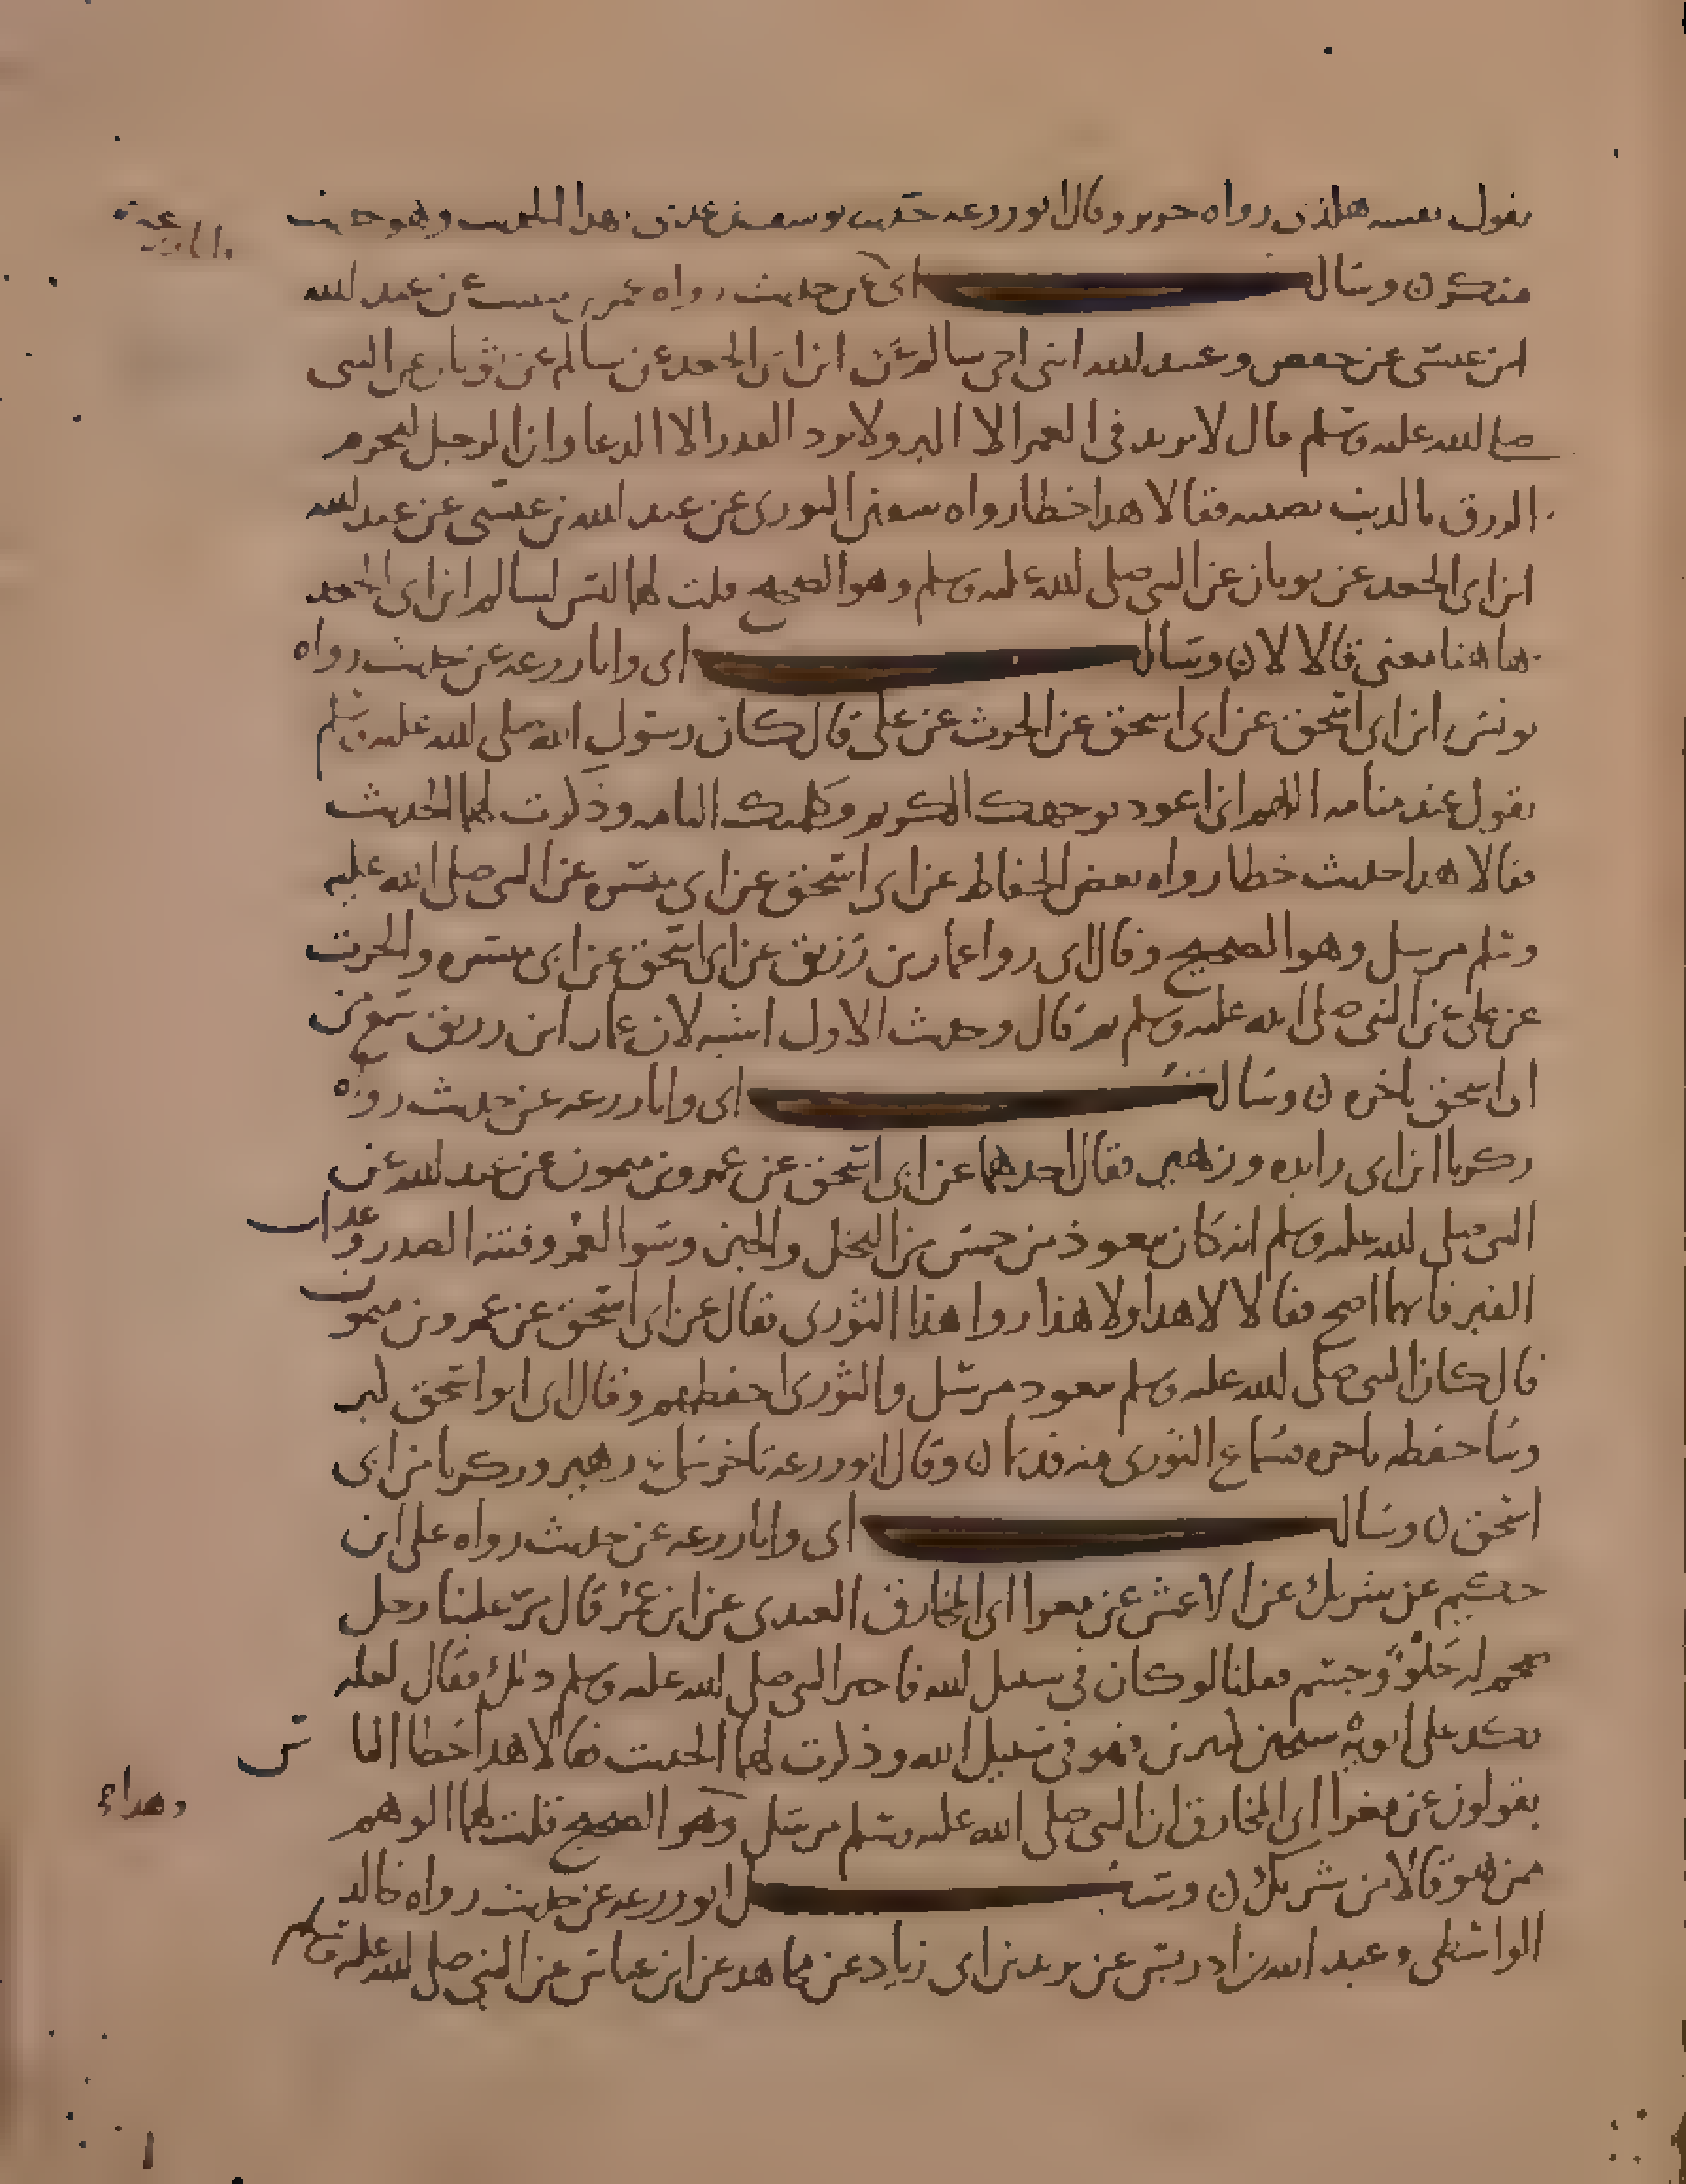 يقول نفسه هكذى رواه جرير وقال ابو زرعه حديث يوسف بن عدى هذا الحديث وهو حديث
منكر ن وسالت ابى عن حديث رواه عمر بن عن عبد الله
ابن عيسى عن حفص وعبيد الله ابنى اخى سالم عن ابن ابى الجعد عن سالم عن ثوبان عن النبى
صلى الله عليه وسلم قال لا يزيد فى العمر الا البر ولا يرد القدر الا الدعا وان الرجل ليحرم
الرزق بالذنب يصيبه فقالا هذا خطا رواه سفين الثورى عن عبد الله بن عيسى عن عبد الله
ابن ابى الجعد عن ثوبان عن النبى صلى الله عليه وسلم وهو الصحيح قلت لهما ليس لسالم ابن ابى الجعد
هاهنا معنى قالا لا ن وسالت ابى وابا زرعه عن حديث رواه
يونس ابن ابى اسحق عن ابى اسحق عن الحرث عن على قال كان رسول الله صلى الله عليه وسلم
يقول عند منامه اللهم انى اعوذ بوجهك الكريم وكلمتك التامه وذكرت لهما الحديث
فقالا هذا حديث خطا رواه بعض الحفاظ عن ابى اسحق عن ابى ميسره عن النبى صلى الله عليه
وسلم مرسل وهو الصحيح وقال ابى روا عمار بن رزيق عن ابى اسحق عن ابى ميسره والحرث
عن على عن النبى صلى الله عليه وسلم ثم قال وحديث الاول اشبه لان عمار ابن رزيق سمع من
ابى اسحق باخره ن وسالت ابى وابا زرعه عن حديث رواه
زكريا ابن ابى زايده وزهير فقال احدهما عن ابى اسحق عن عمرو بن ميمون عن عبد الله عن
النبى صلى الله عليه وسلم انه كان يتعوذ من خمس من البخل والجبن وسوا العمر وفتنة الصدر وعذاب
القبر فايهما اصح فقالا لا هذا ولا هذا روا هذا الثورى فقال عن ابى اسحق عن عمرو بن ميمون
قال كان النبى صلى الله عليه وسلم يتعوذ مرسل والثورى احفظهم وقال ابى ابو اسحق كبر
وسا حفظه باخره فسماع الثورى منه قديما ن وقال ابو زرعه تاخر سماع زهير وزكريا من ابى
اسحق ن وسالت ابى وابا زرعه عن حديث رواه على ابن
حكيم عن شريك عن الاعمش عن مغرا ابى المخارق العبدى عن ابن عمر قال مر علينا رجل
له خلق وجسم فقلنا لو كان فى سبيل الله فاخبر النبى صلى الله عليه وسلم ذلك فقال لعله
يكد على ابويه شيخين كبيرين فهو فى سبيل الله وذكرت لهما الحديث فقالا هذا خطا الناس
يقولون عن مغرا ابى المخارق ان النبى صلى الله عليه وسلم مرسل وهو الصحيح قلت لهما الوهم
ممن هو قالا من شريك ن وسئل ابو زرعه عن حديث رواه خالد
الواسطى وعبد الله بن ادريس عن يزيد بن ابى زياد عن مجاهد عن ابن عباس عن النبى صلى الله عليه وسلم